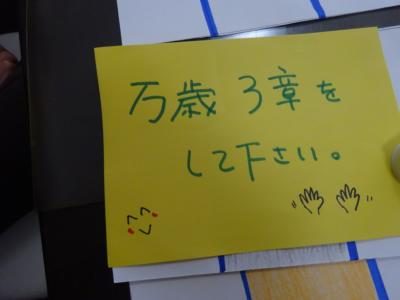 万歳3章を
して下さい。